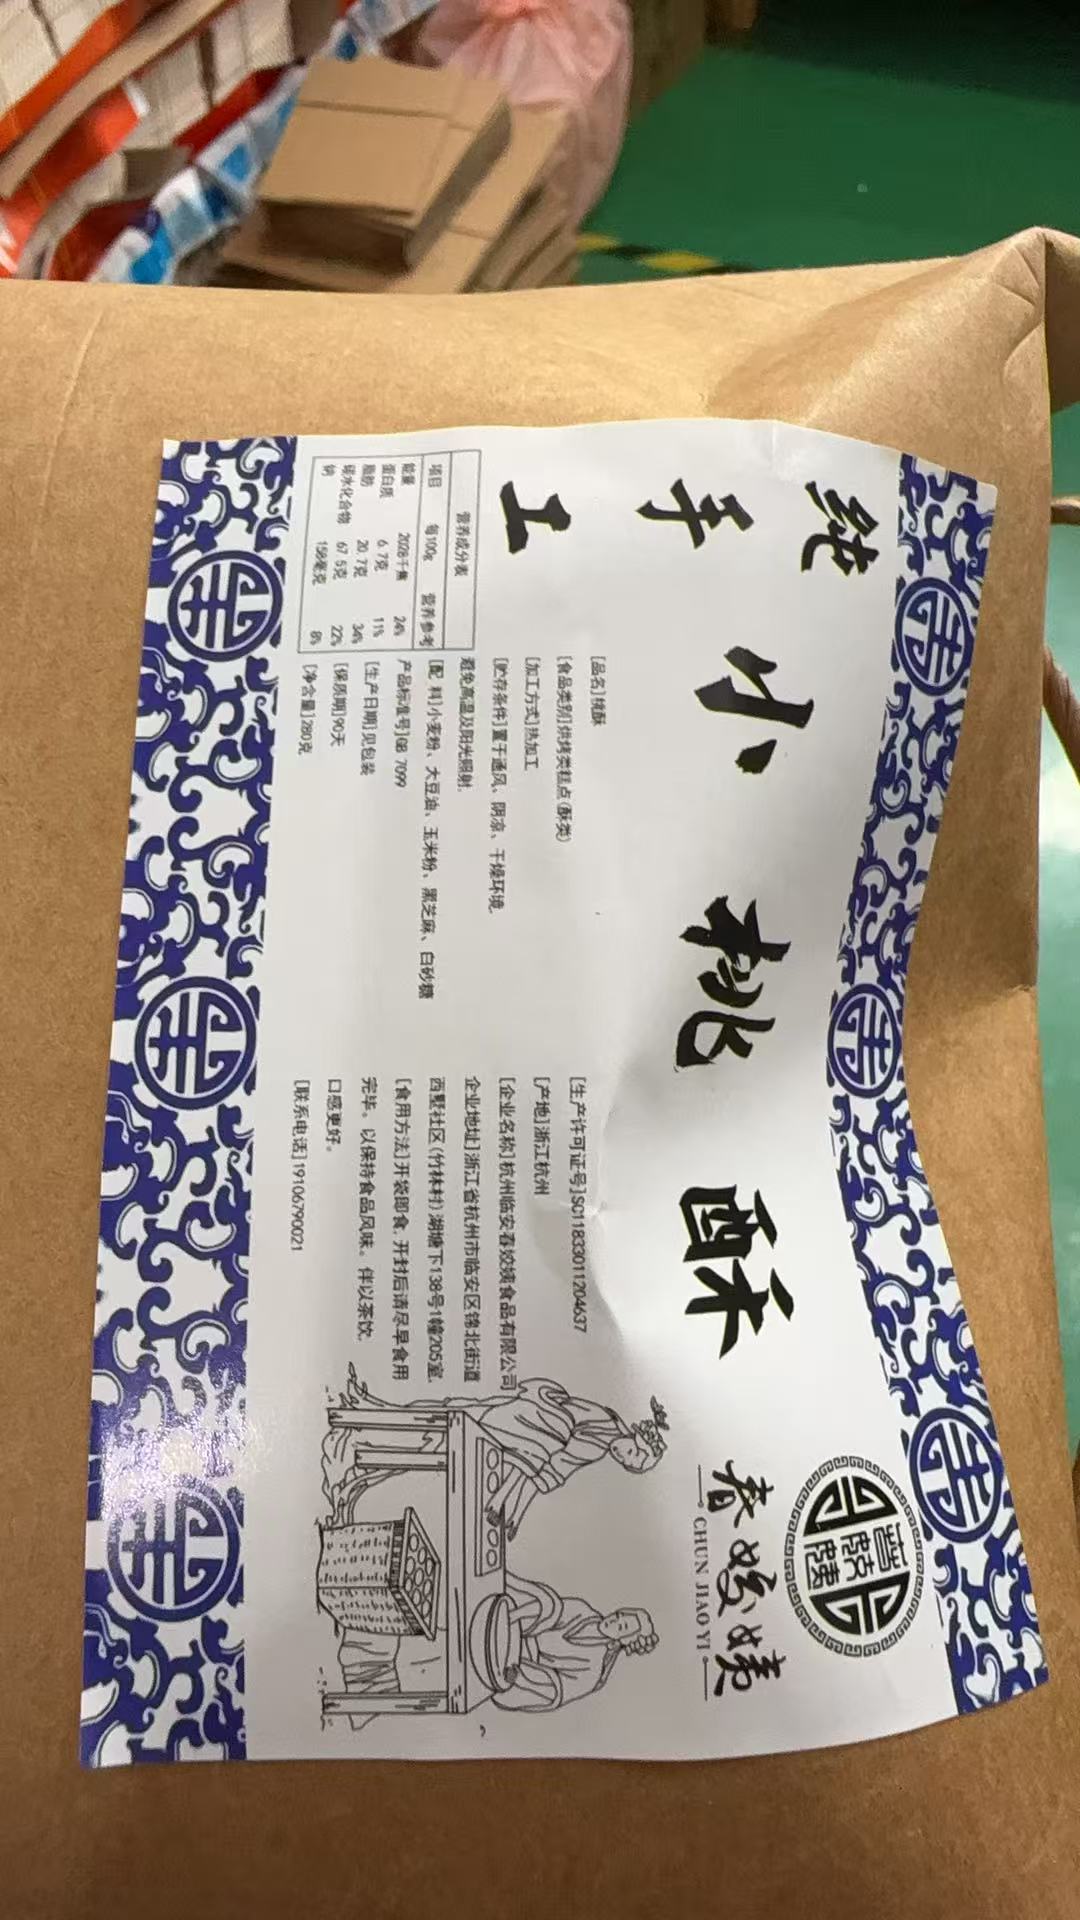 纯手工
小桃酥
春姣姨
CHUN JIAO YI
营养成分表
项目 每100g 营养参考
能量 2028千焦 24%
蛋白质 6.7克 11%
脂肪 20.7克 34%
碳水化合物 67.5克 22%
钠 158毫克 8%
[品名]桃酥
[食品类别]烘烤类糕点(酥类)
[加工方式]热加工
[贮存条件]置于通风、阴凉、干燥环境,
避免高温及阳光照射.
[配 料]小麦粉、大豆油、玉米粉、黑芝麻、白砂糖
产品标准号]GB 7099
[生产日期]见包装
[保质期]90天
[净含量]280克
[生产许可证号]SC11833011204637
[产地]浙江杭州
[企业名称]杭州临安春姣姨食品有限公司
企业地址]浙江省杭州市临安区锦北街道
西墅社区(竹林村)湖塘下138号1幢205室.
[食用方法]开袋即食,开封后请尽早食用
完毕。以保持食品风味。伴以茶饮,
口感更好。
[联系电话]19106790021